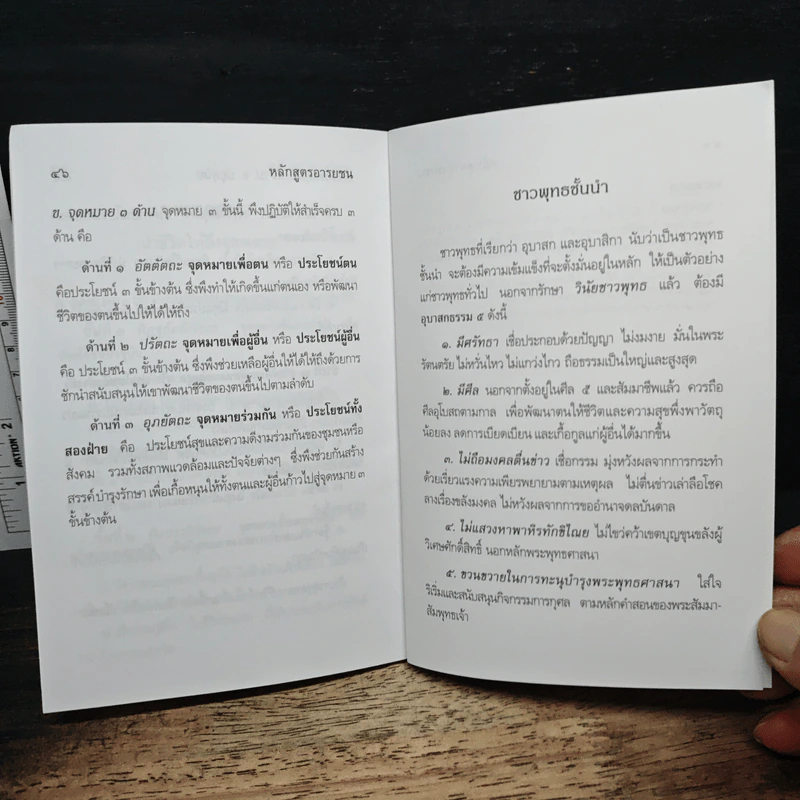 ๔๖ หลักสูตรอารยชน
ข. จุดหมาย ๓ ด้าน จุดหมาย ๓ ขั้นนี้ พึงปฏิบัติให้สำเร็จครบ ๓
ด้าน คือ
ด้านที่ ๑ อัตตัตถะ จุดหมายเพื่อตน หรือ ประโยชน์ตน
คือประโยชน์ ๓ ขั้นข้างต้น ซึ่งพึงทำให้เกิดขึ้นแก่ตนเอง หรือพัฒนา
ชีวิตของตนขึ้นไปให้ได้ให้ถึง
ด้านที่ ๒ ปรัตถะ จุดหมายเพื่อผู้อื่น หรือ ประโยชน์ผู้อื่น
คือ ประโยชน์ ๓ ขั้นข้างต้น ซึ่งพึงช่วยเหลือผู้อื่นให้ได้ให้ถึงด้วยการ
ชักนำสนับสนุนให้เขาพัฒนาชีวิตของตนขึ้นไปตามลำดับ
ด้านที่ ๓ อุภยัตถะ จุดหมายร่วมกัน หรือ ประโยชน์ทั้ง
สองฝ่าย คือ ประโยชน์สุขและความดีงามร่วมกันของชุมชนหรือ
สังคม รวมทั้งสภาพแวดล้อมและปัจจัยต่างๆ ซึ่งพึงช่วยกันสร้าง
สรรค์ บำรุงรักษา เพื่อเกื้อหนุนให้ทั้งตนและผู้อื่นก้าวไปสู่จุดหมาย ๓
ขั้นข้างต้น
ชาวพุทธชั้นนำ
ชาวพุทธที่เรียกว่า อุบาสก และอุบาสิกา นับว่าเป็นชาวพุทธ
ชั้นนำ จะต้องมีความเข้มแข็งที่จะตั้งมั่นอยู่ในหลัก ให้เป็นตัวอย่าง
แก่ชาวพุทธทั่วไป นอกจากรักษา วินัยชาวพุทธ แล้ว ต้องมี
อุบาสกธรรม ๕ ดังนี้
๑. มีศรัทธา เชื่อประกอบด้วยปัญญา ไม่งมงาย มั่นในพระ
รัตนตรัย ไม่หวั่นไหว ไม่แกว่งไกว ถือธรรมเป็นใหญ่และสูงสุด
๒. มีศีล นอกจากตั้งอยู่ในศีล ๕ และสัมมาชีพแล้ว ควรถือ
ศีลอุโบสถตามกาล เพื่อพัฒนาตนให้ชีวิตและความสุขพึ่งพาวัตถุ
น้อยลง ลดการเบียดเบียน และเกื้อกูลแก่ผู้อื่นได้มากขึ้น
๓. ไม่ถือมงคลตื่นข่าว เชื่อกรรม มุ่งหวังผลจากการกระทำ
ด้วยเรี่ยวแรงความเพียรพยายามตามเหตุผล ไม่ตื่นข่าวเล่าลือโชค
ลางเรื่องขลังมงคล ไม่หวังผลจากการขออำนาจดลบันดาล
๔. ไม่แสวงหาพาหิรทักขิไณย ไม่ไขว่คว้าเขตบุญขุนขลังผู้
วิเศษศักดิ์สิทธิ์ นอกหลักพระพุทธศาสนา
๕. ขวนขวายในการทะนุบำรุงพระพุทธศาสนา ใส่ใจ
ริเริ่มและสนับสนุนกิจกรรมการกุศล ตามหลักคำสอนของพระสัมมา-
สัมพุทธเจ้า